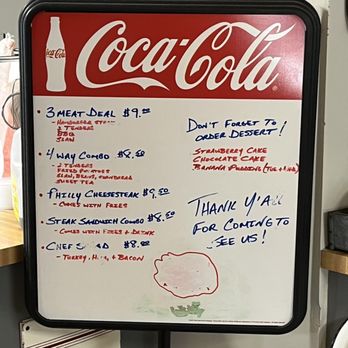 Coca-Cola
Coca-Cola
3 MEAT DEAL $9.00
- HAMBURGER
2 TENDERS
BBQ
SLAW
4 WAY COMBO $8.50
- 2 TENDERS
FRIED POTATOES
SLAW, BEANS, CORNBREAD
SWEET TEA
PHILLY CHEESESTEAK $9.50
- COMES WITH FRIES
STEAK SANDWICH COMBO $8.50
- COMES WITH FRIES & DRINK
CHEF $8.00
- TURKEY, & BACON
DON'T FORGET TO
ORDER DESSERT!
STRAWBERRY CAKE
CHOCOLATE CAKE
BANANA PUDDING (TUE & THU)
THANK Y'ALL
FOR COMING TO
SEE US!